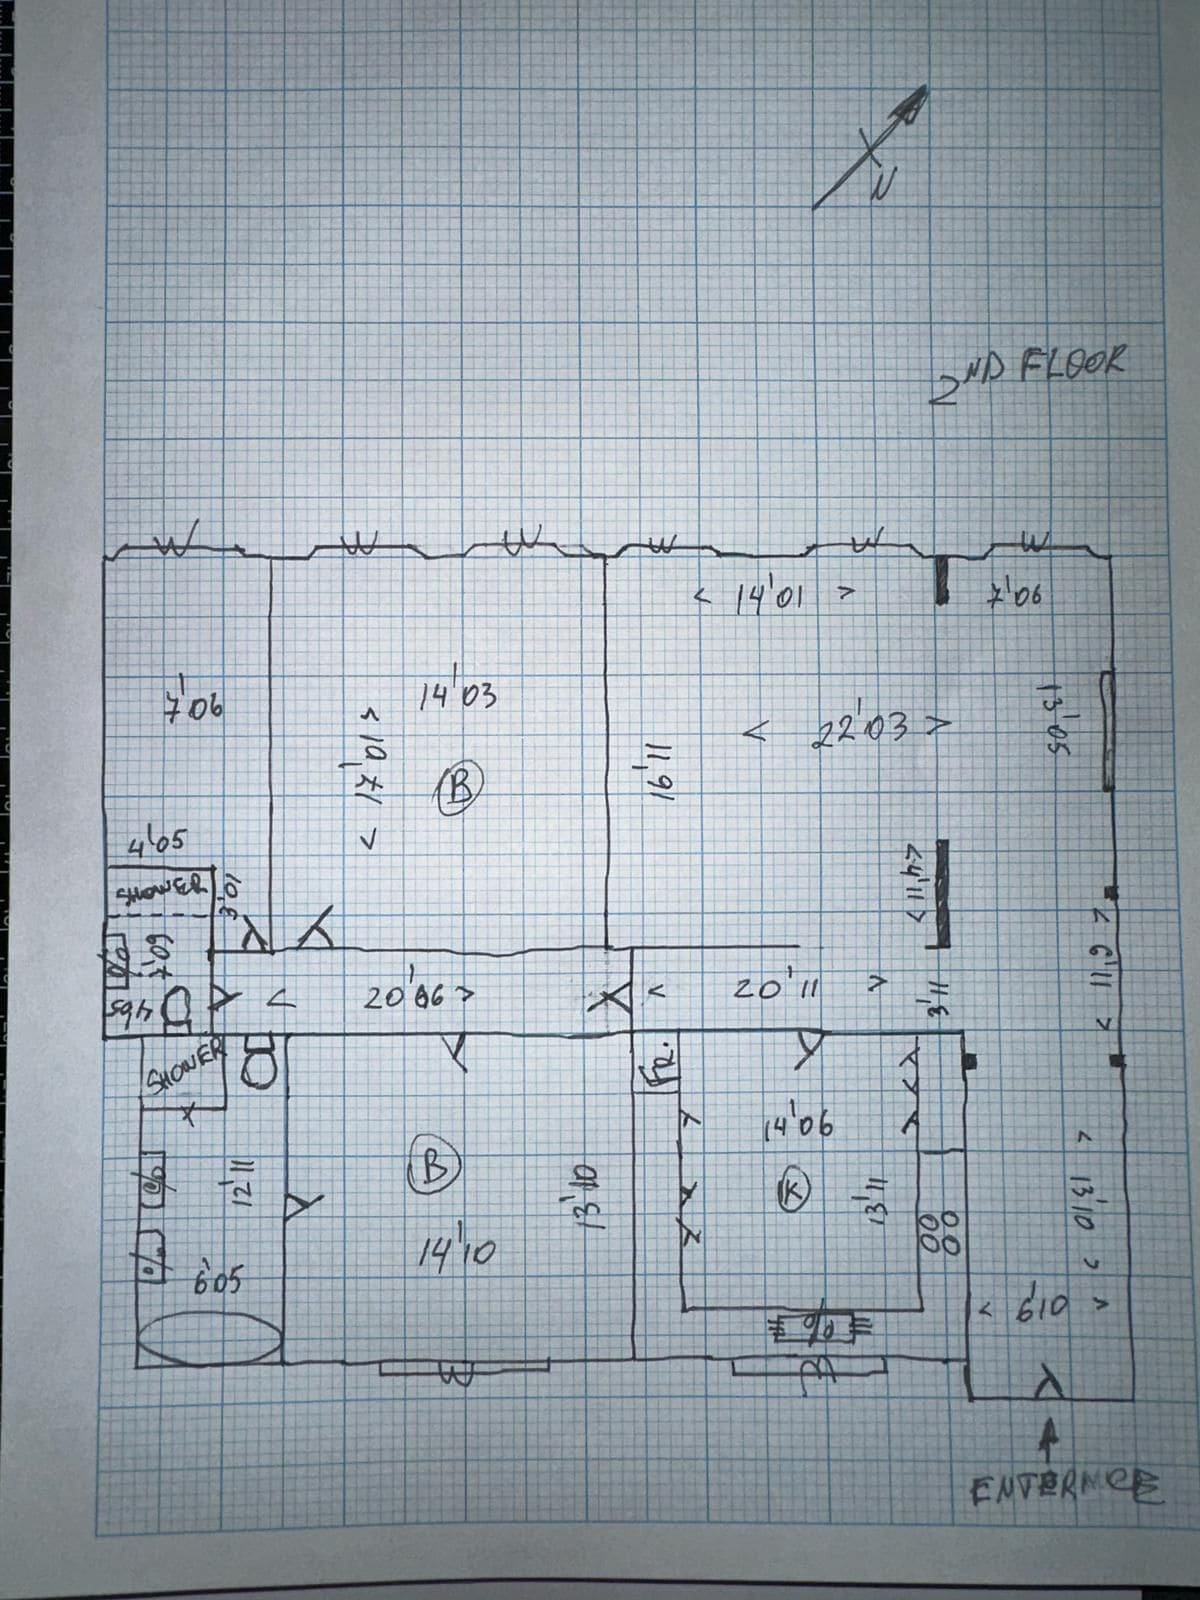 N
2ND FLOOR
W W W W W W
< 14'01 >
7'06
7'06
14'03
< 17'01 >
B
16'11
< 22'03 >
13'05
4'05
SHOWER
3'01
7'09
< 4'11 >
< 6'11 >
< 20'06 >
< 20'11 >
3'11
SHOWER
FR.
14'06
K
13'11
B
13'10
12'11
14'10
6'05
< 13'10 >
< 6'10 >
W
W
ENTERNCE